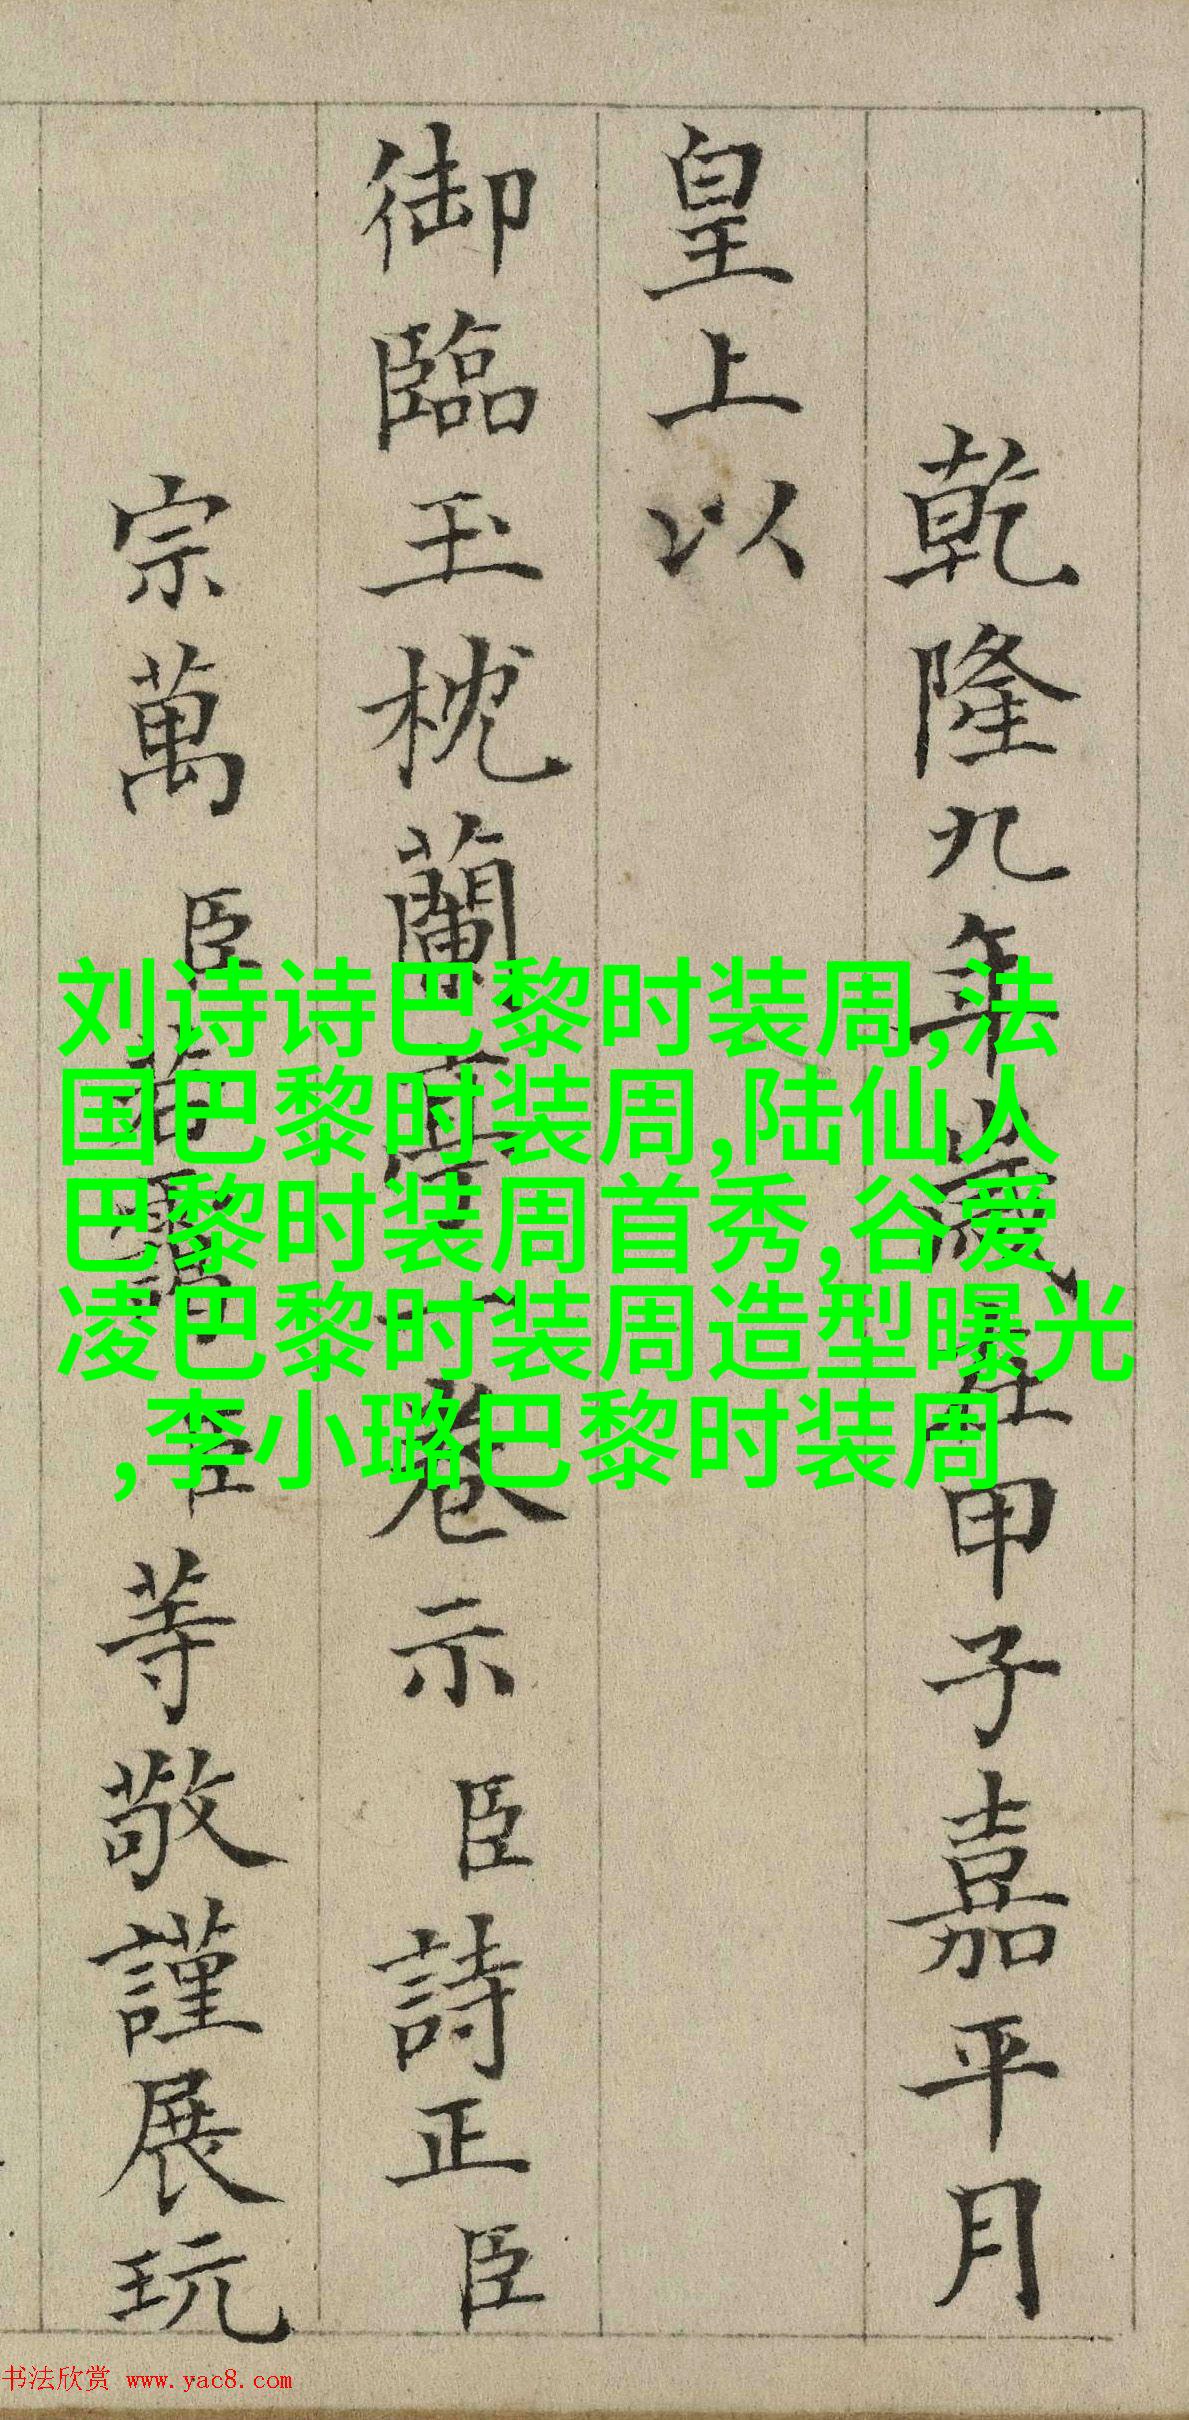 乾隆九年歲在甲子嘉平月
皇上以
御臨玉枕蘭亭一卷示臣詩正臣
宗萬臣若靄臣等敬謹展玩
刘诗诗巴黎时装周,法
国巴黎时装周,陆仙人
巴黎时装周首秀,谷爱
凌巴黎时装周造型曝光
,李小璐巴黎时装周
书法欣赏 www.yac8.com